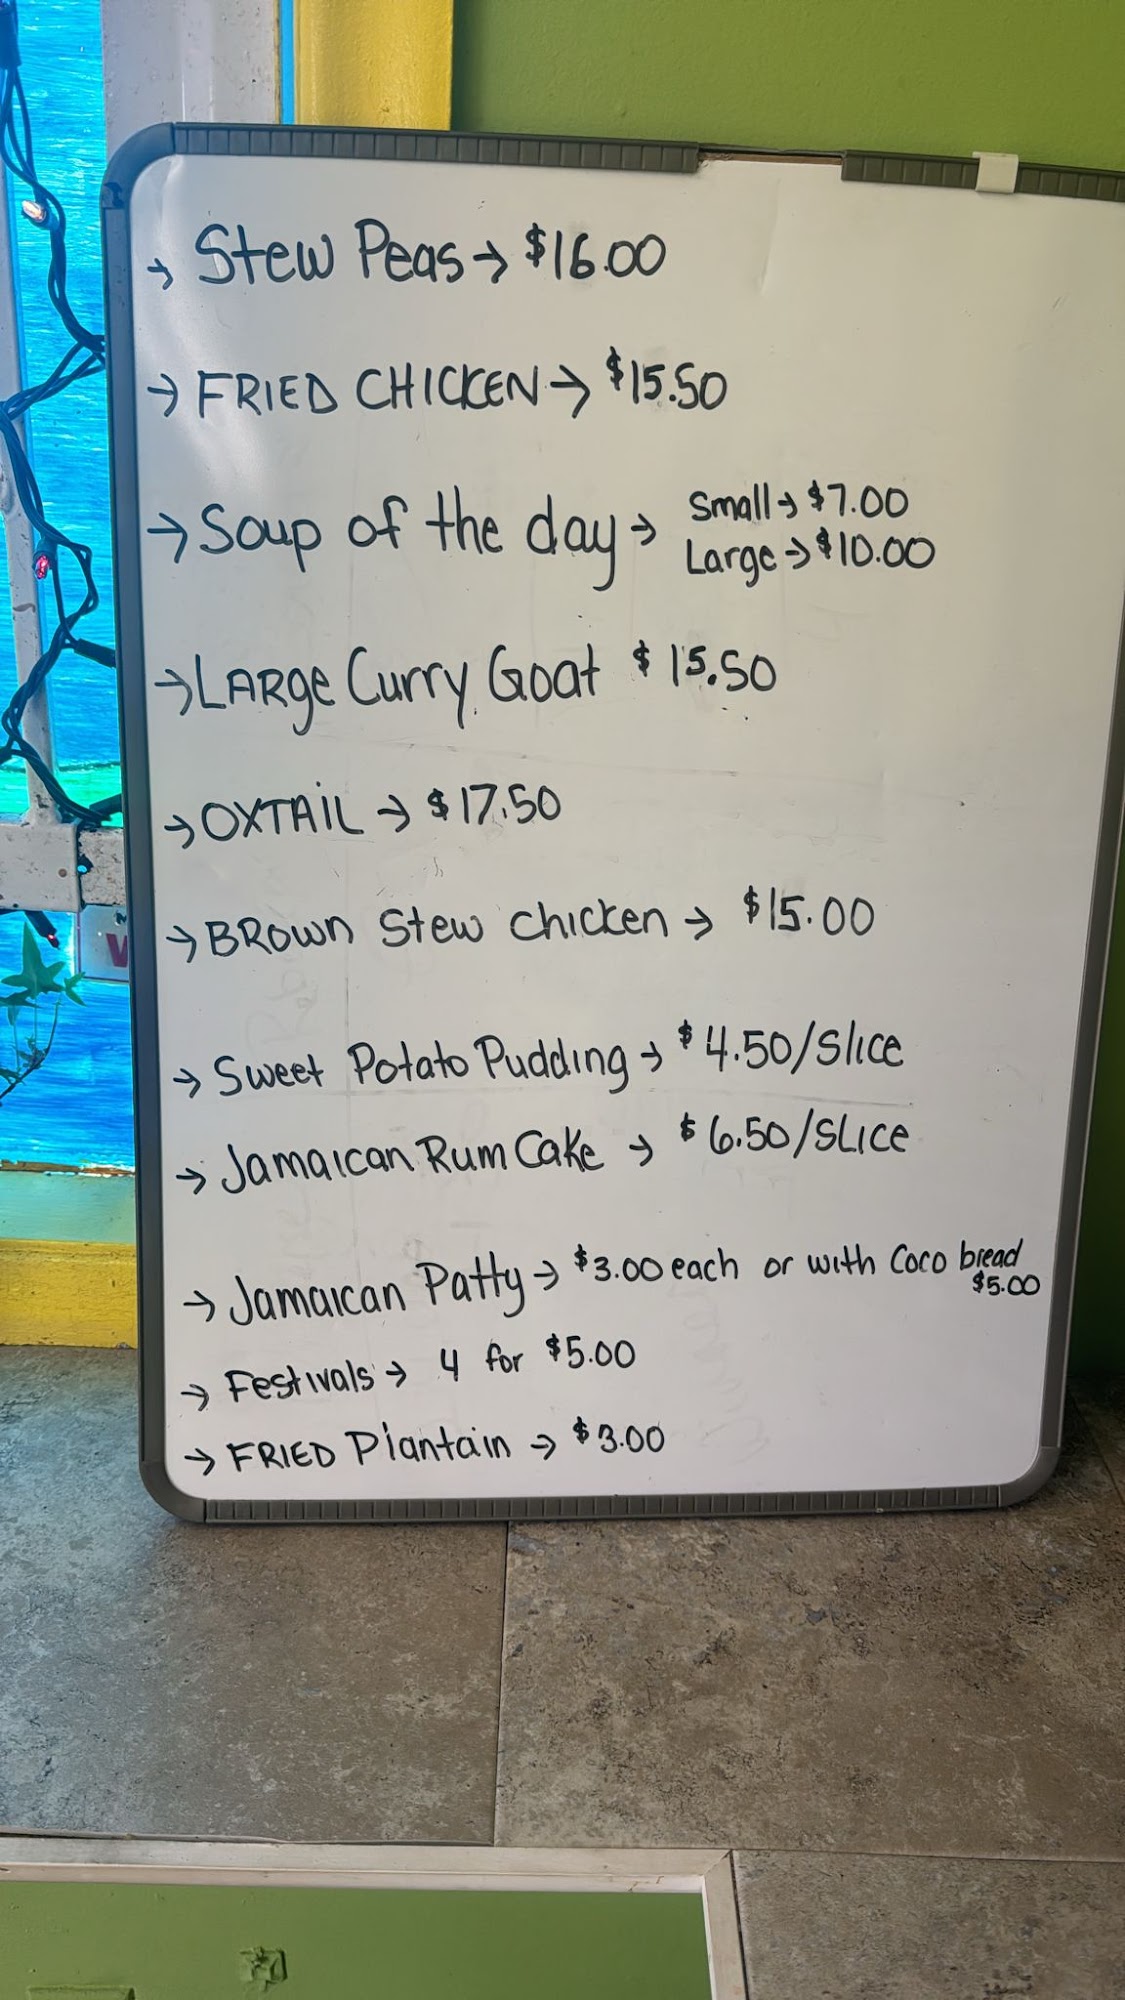 → Stew Peas → $16.00
→ FRIED CHICKEN → $15.50
→ Soup of the day → Small → $7.00
Large → $10.00
→ LARge Curry Goat $15.50
→ OXTAIL → $17.50
→ BROWN Stew chicken → $15.00
→ Sweet Potato Pudding → $4.50/Slice
→ Jamaican Rum Cake → $6.50/SLICE
→ Jamaican Patty → $3.00 each or with Coco bread
$5.00
→ Festivals → 4 for $5.00
→ FRIED Plantain → $3.00